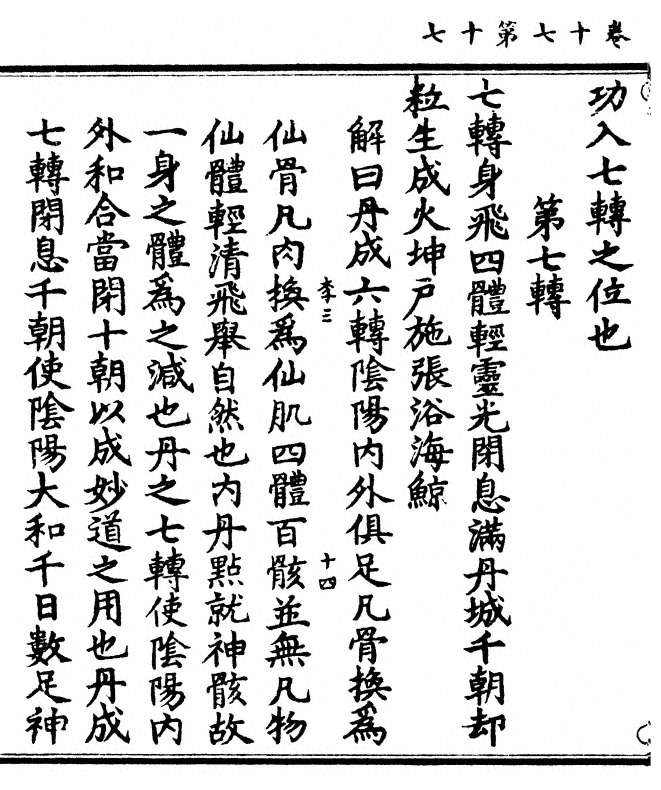 卷十七第十七
功入七轉之位也
第七轉
七轉身飛四體輕靈光閉息滿丹城千朝却
粒生成火坤户施張浴海鯨
解曰丹成六轉陰陽内外俱足凡骨換爲
李三
十四
仙骨凡肉換爲仙肌四體百骸並無凡物
仙體輕清飛舉自然也内丹點就神骸故
一身之體爲之減也丹之七轉使陰陽内
外和合當閉十朝以成妙道之用也丹成
七轉閉息千朝使陰陽大和千日數足神